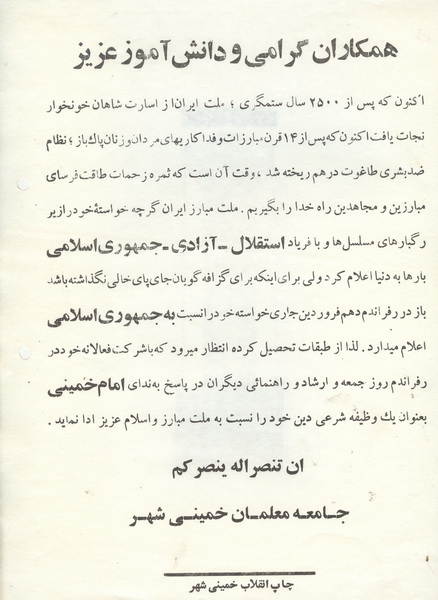 همکاران گرامی و دانش آموز عزیز
اکنون که پس از ۲۵۰۰ سال ستمگری ؛ ملت ایران از اسارت شاهان خونخوار
نجات یافت اکنون که پس از ۱۴ قرن مبارزات و فداکاریهای مردان و زنان پاک باز ؛ نظام
ضد بشری طاغوت درهم ریخته شد ، وقت آن است که ثمره زحمات طاقت فرسای
مبارزین و مجاهدین راه خدا را بگیریم . ملت مبارز ایران گرچه خواستهٔ خود را زیر
رگبارهای مسلسل‌ها و با فریاد استقلال ـ آزادی ـ جمهوری اسلامی
بارها به دنیا اعلام کرد ولی برای اینکه برای گزافه گویان جای پای خالی نگذاشته باشد
باز در رفراندم دهم فروردین جاری خواسته خود را نسبت به جمهوری اسلامی
اعلام میدارد . لذا از طبقات تحصیل کرده انتظار میرود که با شرکت فعالانه خود در
رفراندم روز جمعه و ارشاد و راهنمائی دیگران در پاسخ به ندای امام خمینی
بعنوان یك وظیفه شرعی دین خود را نسبت به ملت مبارز و اسلام عزیز ادا نماید .
ان تنصر اله ینصر کم
جـامعه معلمـان خمینـی شهـر
چاپ انقلاب خمینی شهر